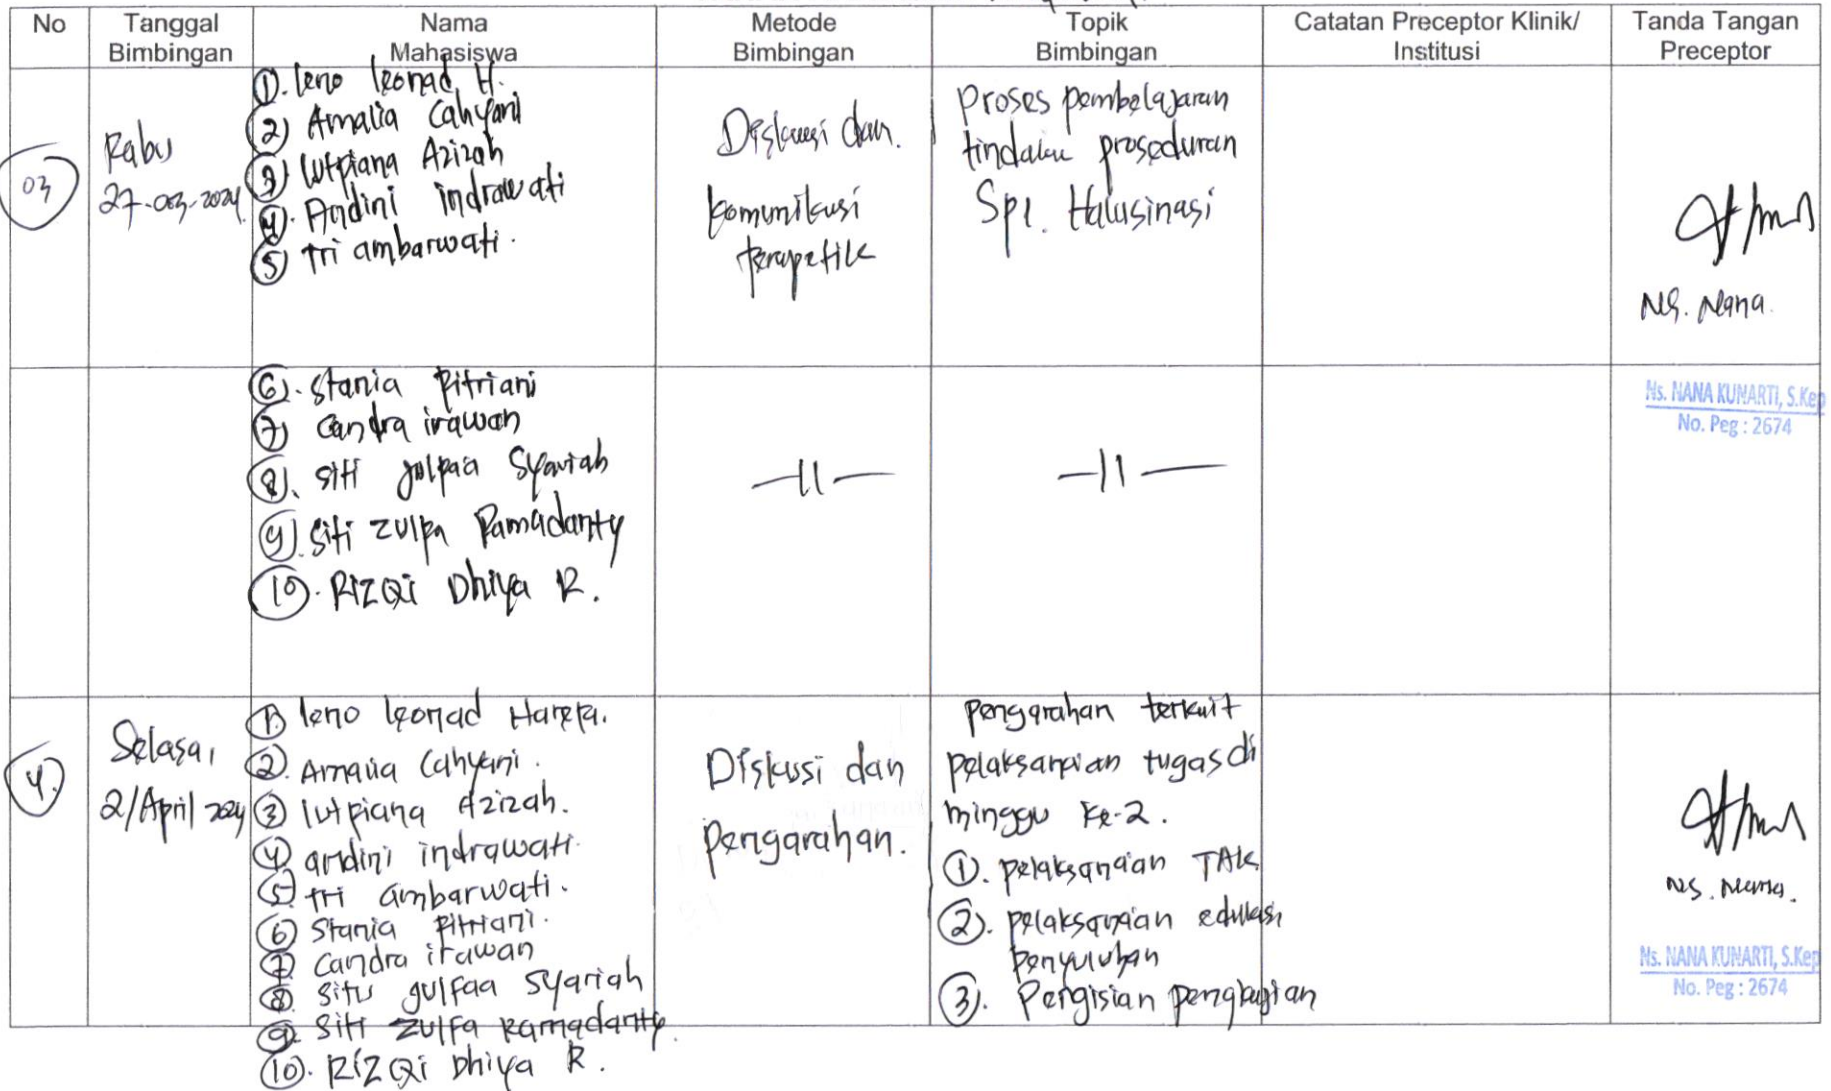 No
Tanggal
Bimbingan
Nama
Mahasiswa
Metode
Bimbingan
Topik
Bimbingan
Catatan Preceptor Klinik/
Institusi
Tanda Tangan
Preceptor
03
Rabu
27-03-2024
1. leno leonad H.
2) Amalia Cahyani
3) lutpiana Azizah
4. Andini indrawati
5) tri ambarwati.
Diskusi dan.
komunikasi
terapetik
Proses pembelajaran
tindakan proseduran
Sp1. Halusinasi
Ns. Nana.
6). stania Pitriani
7) Candra irawan
8). siti julpaa Syariah
9). siti zulpa Ramadanty
10). RIZQi Dhiya R.
—11—
—11—
Ns. NANA KUNARTI, S.Kep
No. Peg : 2674
4.
Selasa,
2/April 2024
1. leno leonad Harefa.
2. Amalia Cahyani.
3 lutpiana Azizah.
4) andini indrawati.
5. tri ambarwati.
6) Stania Pitriani.
7. Candra irawan
8. Situ gulfaa Syariah
9. Siti zulfa Ramadanty.
10). RIZQi Dhiya R.
Diskusi dan
Pengarahan.
pengarahan terkait
pelaksanaan tugas di
minggu ke-2.
1. pelaksanaan TAK
2). pelaksanaan edukasi
penyuluhan
3). Pengisian pengkajian
Ns. Nana.
Ns. NANA KUNARTI, S.Kep
No. Peg : 2674